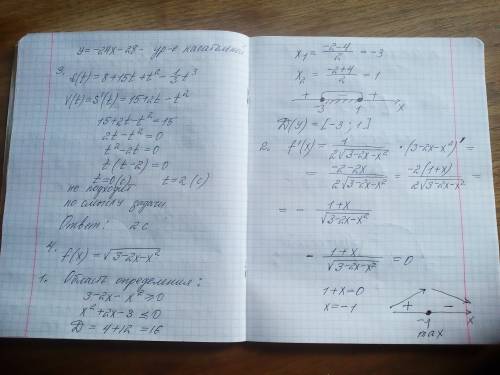 y = -24x - 28 - ур-е касательной
3. S(t) = 8 + 15t + t² - 1/3 t³
V(t) = S'(t) = 15 + 2t - t²
15 + 2t - t² = 15
2t - t² = 0
t² - 2t = 0
t (t - 2) = 0
t = 0 (с) t = 2 (с)
не подходит
по смыслу задачи
Ответ: 2 с
4. f(x) = √(3-2x-x²)
1. Область определения:
3 - 2x - x² ≥ 0
x² + 2x - 3 ≤ 0
D = 4 + 12 = 16
x₁ = (-2-4)/2 = -3
x₂ = (-2+4)/2 = 1
+ - +
-3 1 x
D(y) = [-3; 1]
2. f'(x) = 1/(2√(3-2x-x²)) · (3-2x-x²)' =
= (-2-2x)/(2√(3-2x-x²)) = -2(1+x)/(2√(3-2x-x²)) =
= - (1+x)/√(3-2x-x²)
- (1+x)/√(3-2x-x²) = 0
1 + x = 0
x = -1
+ -
-1 x
max